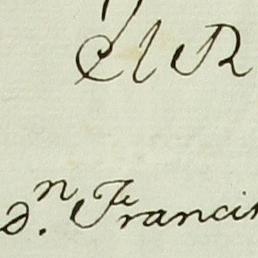 El R
d.n Francis